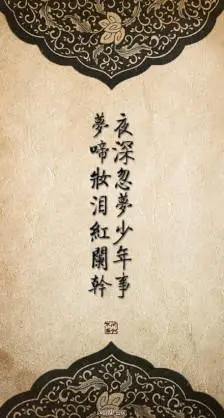 夜深忽夢少年事
夢啼妝泪紅闌幹